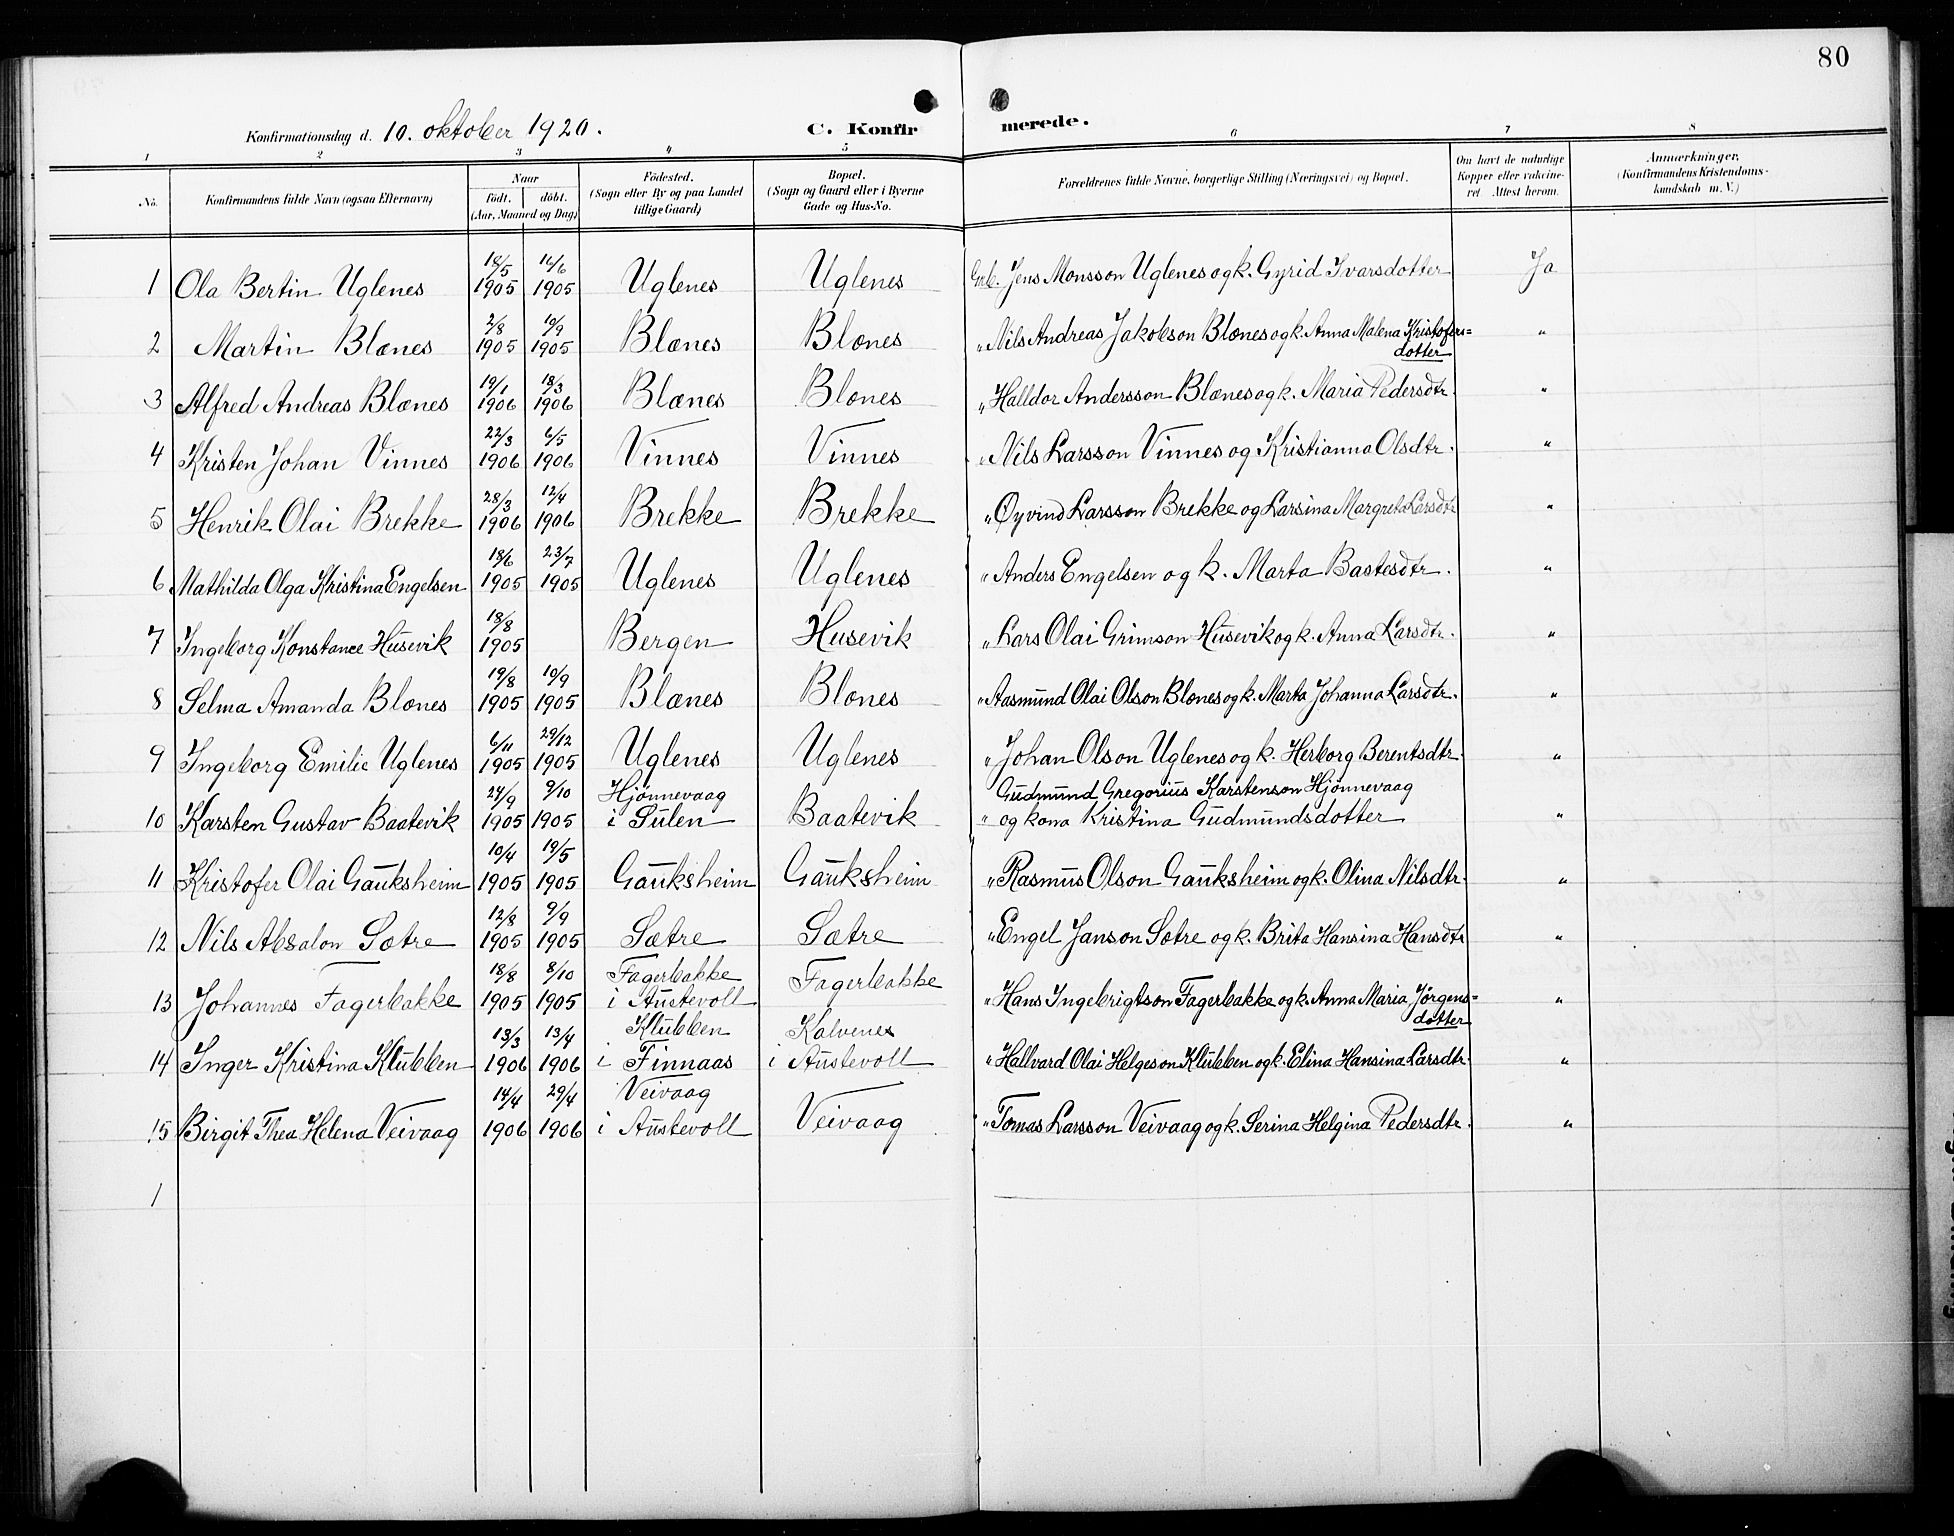 80
Konfirmationsdag d. 10. oktober 1920. C. Konfirmerede.
1 2 3 4 5 6 7 8
No. Konfirmandens fulde Navn (ogsaa Efternavn) Naar født. døbt. (Aar, Maaned og Dag) Fødested. (Sogn eller By og paa Landet tillige Gaard) Bopæl. (Sogn og Gaard eller i Byerne Gade og Hus-No. Forældrenes fulde Navne, borgerlige Stilling (Næringsvei) og Bopæl. Om havt de naturlige Kopper eller vakcineret. Attest herom. Anmærkninger, (Konfirmandens Kristendomskundskab m. V.)
1 Ola Bertin Uglenes 18/5 1905 16/6 1905 Uglenes Uglenes Grb. Jens Monsson Uglenes og k. Gyrid Ivarsdotter Ja
2 Martin Blænes 2/8 1905 10/9 1905 Blænes Blænes " Nils Andreas Jakobson Blænes og k. Anna Malena Kristofers=dotter "
3 Alfred Andreas Blænes 19/1 1906 18/3 1906 Blænes Blænes " Halldor Andersson Blænes og k. Maria Pedersdtr. "
4 Kristen Johan Vinnes 22/3 1906 6/5 1906 Vinnes Vinnes " Nils Larsson Vinnes og Kristianna Olsdtr. "
5 Henrik Olai Brekke 28/3 1906 12/4 1906 Brekke Brekke " Øyvind Larsson Brekke og Larsina Margreta Larsdtr "
6 Mathilda Olga Kristina Engelsen 18/6 1905 23/7 1905 Uglenes Uglenes " Anders Engelsen og k. Marta Bastesdtr. "
7 Ingeborg Konstance Husevik 18/8 1905 Bergen Husevik " Lars Olai Grimson Husevik og k. Anna Larsdtr. "
8 Selma Amanda Blænes 19/8 1905 10/9 1905 Blænes Blænes " Aasmund Olai Olson Blænes og k. Marta Johanna Larsdtr. "
9 Ingeborg Emilie Uglenes 6/11 1905 29/12 1905 Uglenes Uglenes " Johan Olson Uglenes og k. Herborg Berentsdtr. "
10 Karsten Gustav Baatevik 24/9 1905 9/10 1905 Hjønnevaag i Sulen Baatevik " Gudmund Gregorius Karstenson Hjønnevaag og kona Kristina Gudmundsdotter "
11 Kristofer Olai Gauksheim 10/4 1905 19/5 1905 Gauksheim Gauksheim " Rasmus Olson Gauksheim og k. Olina Nilsdtr. "
12 Nils Absalon Sætre 12/8 1905 9/9 1905 Sætre Sætre " Engel Janson Sætre og k. Brita Hansina Hansdtr "
13 Johannes Fagerbakke 18/8 1905 8/10 1905 Fagerbakke i Austevoll Fagerbakke " Hans Ingebrigtson Fagerbakke og k. Anna Maria Jørgens=dotter "
14 Inger Kristina Klubben 13/3 1906 13/4 1906 Klubben i Finnaas Kalvenes i Austevoll " Hallvard Olai Helgeson Klubben og k. Elina Hansina Larsdtr. "
15 Birgit Thea Helena Veivaag 14/4 1906 29/4 1906 Veivaag i Austevoll Veivaag " Tomas Larsson Veivaag og k. Serina Helgina Pedersdtr. "
1